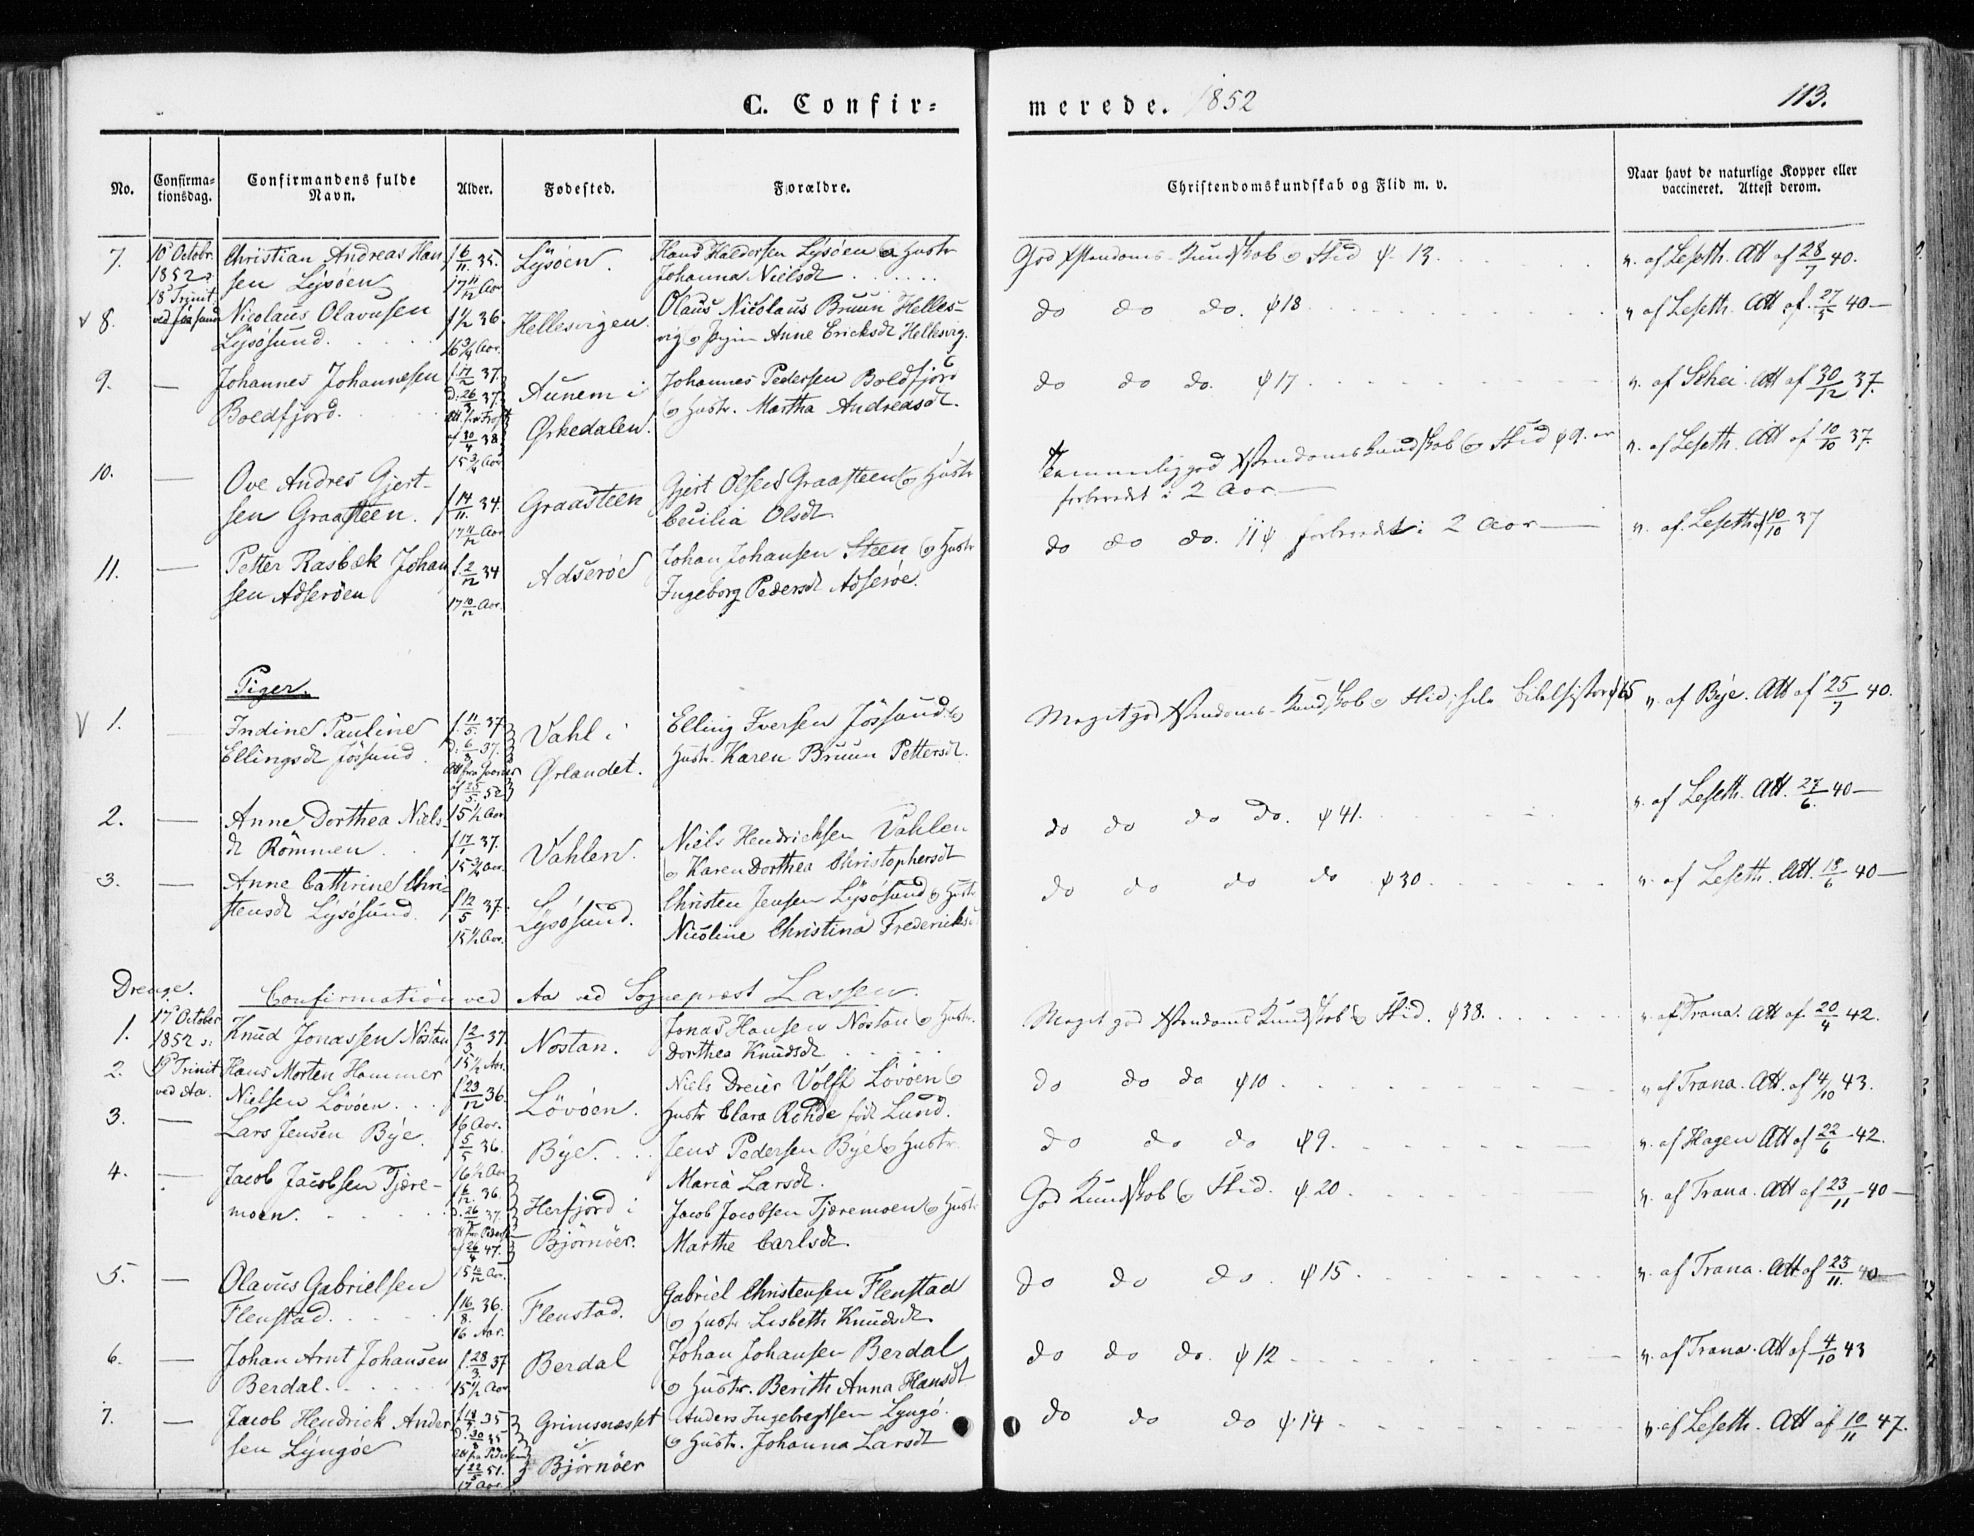 C. Confir= merede. 1852 113.
No. Confirma= tionsdag. Confirmandens fulde Navn. Alder. Fødested. Forældre. Christendomskundskab og Flid m. v. Naar havt de naturlige Kopper eller vaccineret. Attest derom.
7. 10 Octobr. Christian Andreas Han f 6/11 35. Lysöen. Hans Haldorsen Lysöen & Hustr God Xstendoms-Kundskab & Flid ψ 13. v. af Leseth. Att af 28/7 40.
1852 sen Lysöen 17 11/12 Aar Johanna Nielsdt
18 Trinit.
8. Nicolaus Olavusen 36. Hellesvigen. Olaus Nicolaus Bruun Helles- do do do. ψ 18 v af Leseth. Att af. 27/5 40—
Lysösund. 16 3/4 Aar. vig & Anne Ericksdt Hellesvig.
9. — Johannes Johannesen f 17/2 37. Aunem i Johannes Pedersen Boldfjord do do do. ψ 17 v. af Schei. Att af 30/12 37.
Boldfjord. d. 26/3 37. Ørkedalen. & Hustr. Martha Andreasdt.
af 30/4 38
15 3/4 Aar
10. — Ove Andres Gjert- f 14/11. 34. Graasteen Gjert Olsen Graasteen & Hustr Temmelig god Xstendomskundskab & Flid ψ 9. v. af Leseth. Att af 10/10 37.
sen Graasteen. 17 11/12 Aar Cecilia Olsdt. forberedt i 2 Aar.—
11. — Petter Rasbæk Johan f. 2/12 34 Adseröe Johan Johansen Steen & Hustr do do do. 11 ψ forberedt i 2 Aar— v. af. Leseth af 10/10 37
sen Adseröen 17 10/12 Aar. Ingeborg Pedersdt Adseröe.
Piger.
1. Indine Pauline f. 11/5. 37 Vahl i Elling Iversen Jössund & Meget god Xstendoms-Kundskab & Flid, hele Bibelhistor ψ 65 v. af Bye. Att af 25/7 40.
Ellingsdt Jössund. 37. Ørlandet. Hustr. Karen Bruun Pettersdt.
af 25/5 52
15 1/2 Aar
2. — Anne Dorthea Niels- f 17/1 37. Vahlen. Niels Hendrichsen Vahlen do do do do. ψ 41. v. af Leseth. Att. 27/6. 40—
dt Römmen. 15 3/4 Aar. & Karen Dorthea Christophersdt
3. — Anne Cathrine Chri- f 12/5 37. Lysösund. Christen Jensen Lysösund & Hustr do do do do ψ 30 v. af Leseth. Att. 18/6 40—
stensdt Lysösund. 15 1/2 Aar. Nicoline Christina Fredericksd
Drenge. Confirmation ved Aa ved Sognepræst Lassen.
1. 17 October Knud Jonassen Nostan f 2/3 37. Nostan. Jonas Hansen Nostan & Hustr. Meget god Xstendoms Kundskab & Flid. ψ 38. v. af Trana. Att af 20/4 42.
1852 15 1/2 Aar. Dorthea Knudsdt
2. 19 Trinit Hans Morten Hammer f 23/12 36. Lövöen. Niels Dreier Volff Lövöen & do do do ψ 10 v af Trana. Att. af 4/10 43.
ved Aa. Nielsen Lövöen. 16 Aar. Hustr Clara Rohde föd Lund.
3. — Lars Jensen Bye. f 5/5 36. Bye. Jens Pedersen Bye & Hustr. do do do ψ 9. v. af Hagen Att af 22/6 42.
16 1/2 Aar Maria Larsdt.
4. — Jacob Jacobsen Tjære- f 6/12. 36. Herfjord i Jacob Jacobsen Tjæremoen & Hustr God Kundskab & Flid. ψ 20 v. af Trana. Att af 23/11 40—
moen. 37. Björnöer. Marthe Carlsdt.
af 26/4 47.
15 10/12 Aar.
5. — Olavus Gabrielsen f 16/8. 36. Flenstad. Gabriel Christensen Flenstad do do do. ψ 15 v. af Trana. Att af 23/11. 40—
Flenstad. 16 Aar. & Hustr Lisbeth Knudsdt.
6. — Johan Arnt Johansen f. 28/3. 37 Berdal Johan Johansen Berdal do do do. ψ 12 v. af Trana. Att af 4/10 43
Berdal. 15 1/2 Aar & Hustr. Berith Anna Hansdt
7. — Jacob Hendrick Ander 35 Grimsnæsset Anders Ingebregtsen Lyngö. do do do ψ 14 v. af Leseth. Att af 10/11 47.
sen Lyngöe 35 i Björnöer & Hustr. Johanna Larsdt
af 22/5 51.
17 Aar